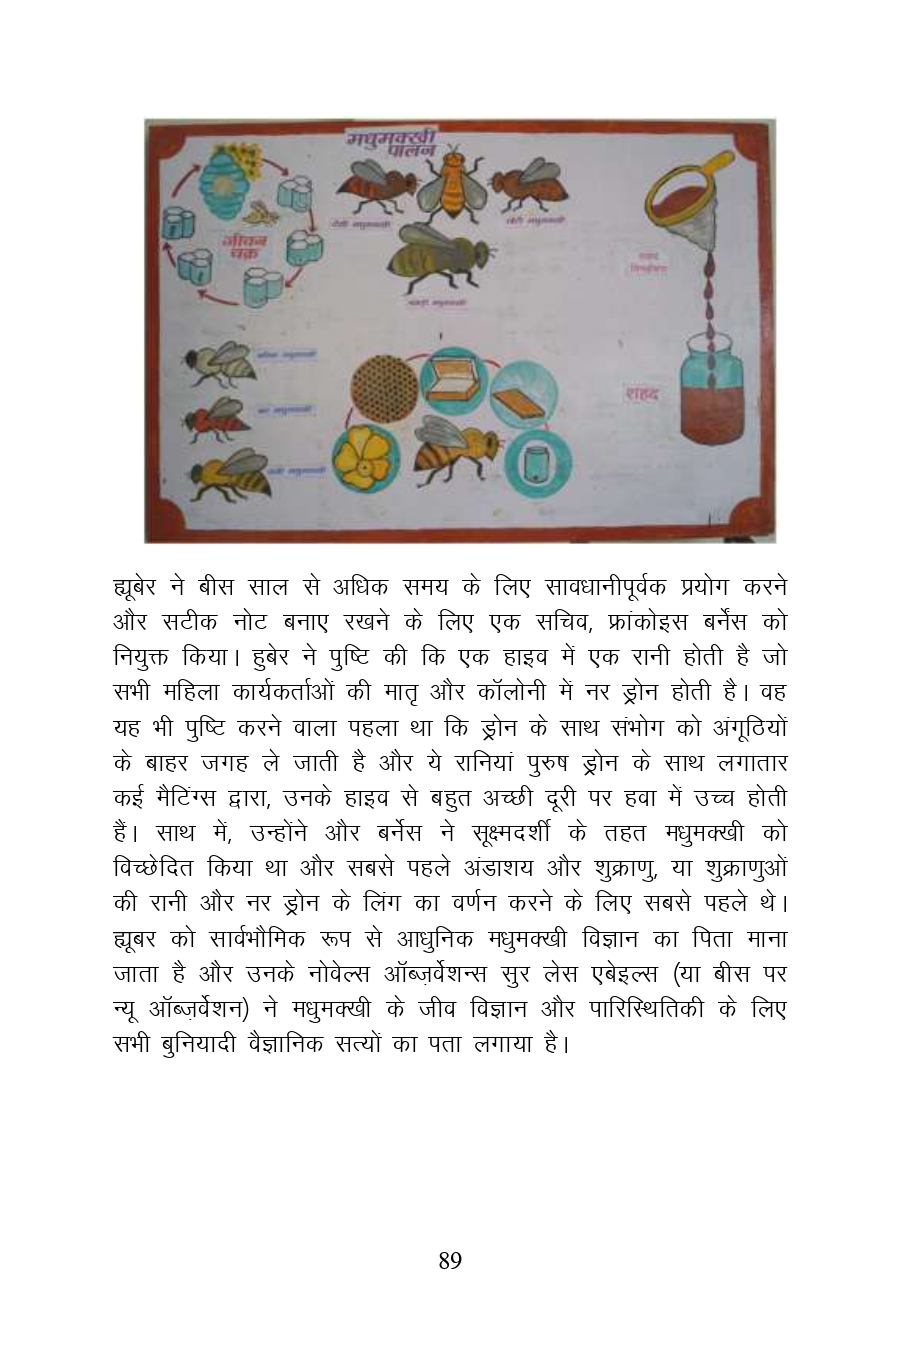 मधुमक्खी
पालन
जीवन
चक्र
शहद
ह्यूबेर ने बीस साल से अधिक समय के लिए सावधानीपूर्वक प्रयोग करने
और सटीक नोट बनाए रखने के लिए एक सचिव, फ्रांकोइस बर्नेंस को
नियुक्त किया। हुबेर ने पुष्टि की कि एक हाइव में एक रानी होती है जो
सभी महिला कार्यकर्ताओं की मातृ और कॉलोनी में नर ड्रोन होती है। वह
यह भी पुष्टि करने वाला पहला था कि ड्रोन के साथ संभोग को अंगूठियों
के बाहर जगह ले जाती है और ये रानियां पुरुष ड्रोन के साथ लगातार
कई मैटिंग्स द्वारा, उनके हाइव से बहुत अच्छी दूरी पर हवा में उच्च होती
हैं। साथ में, उन्होंने और बर्नेस ने सूक्ष्मदर्शी के तहत मधुमक्खी को
विच्छेदित किया था और सबसे पहले अंडाशय और शुक्राणु, या शुक्राणुओं
की रानी और नर ड्रोन के लिंग का वर्णन करने के लिए सबसे पहले थे।
ह्यूबर को सार्वभौमिक रूप से आधुनिक मधुमक्खी विज्ञान का पिता माना
जाता है और उनके नोवेल्स ऑब्ज़र्वेशन्स सुर लेस एबेइल्स (या बीस पर
न्यू ऑब्ज़र्वेशन) ने मधुमक्खी के जीव विज्ञान और पारिस्थितिकी के लिए
सभी बुनियादी वैज्ञानिक सत्यों का पता लगाया है।
89